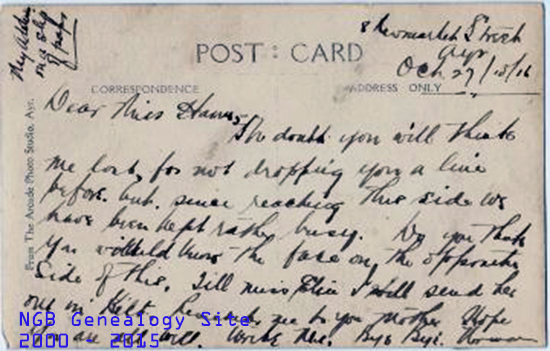 My Address
on a slip
of paper
8 Newmarket Street
Ayr
Oct 27/10/16
POST : CARD
CORRESPONDENCE
ADDRESS ONLY
From The Arcade Photo Studio, Ayr.
Dear Miss
No doubt you will think
me lost, for not dropping you a line
before, but since reaching this side we
have been kept rather busy. Do you think
you would know the face on the opposite
side of this. Tell miss I will send her
one in Kilt. Remember me to your Mother. Hope
you are all well. Write me. Bye Bye. Norman
NGB Genealogy Site
2000 - 2015